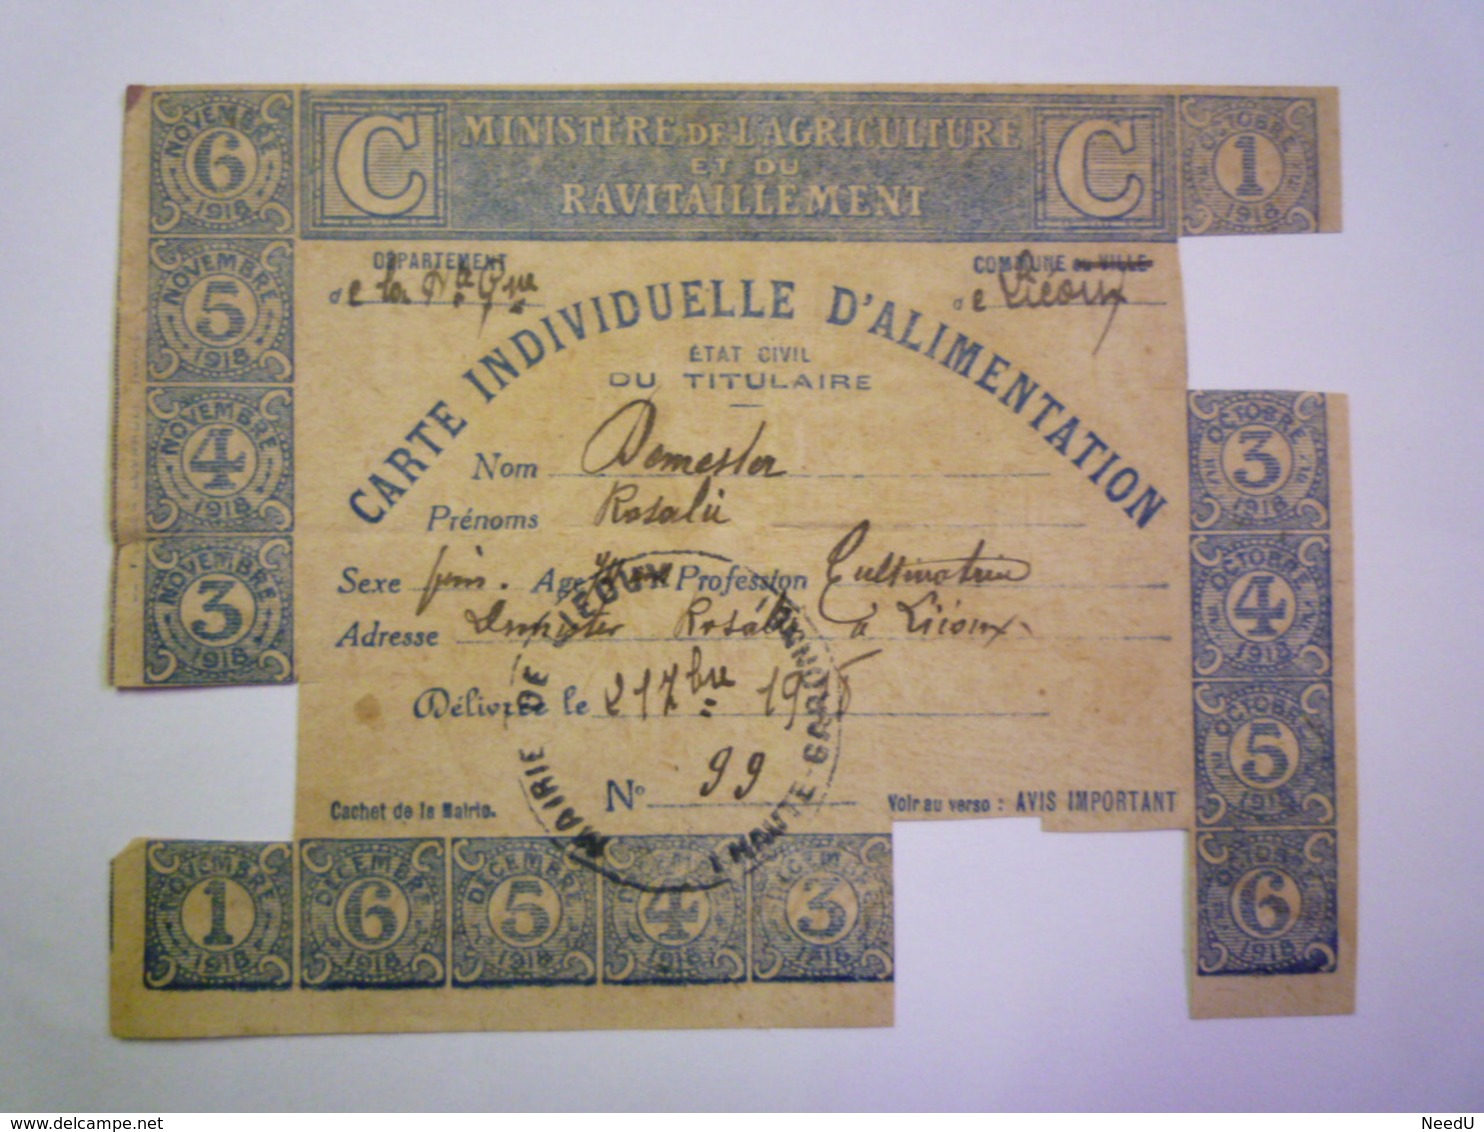 C MINISTÈRE DE L'AGRICULTURE C
ET DU
RAVITAILLEMENT
DÉPARTEMENT
COMMUNE OU VILLE
de la Hte Gne
de Liéoux
CARTE INDIVIDUELLE D'ALIMENTATION
ÉTAT CIVIL
DU TITULAIRE
Nom Demester
Prénoms Rosalie
Sexe fém. Age Profession Cultivatrice
Adresse Demester Rosalie à Liéoux
Délivrée le 21 7bre 19
N° 99
Cachet de la Mairie.
Voir au verso : AVIS IMPORTANT
MAIRIE DE LIEOUX
HAUTE-GARONNE
NOVEMBRE 6 1918
NOVEMBRE 5 1918
NOVEMBRE 4 1918
NOVEMBRE 3 1918
NOVEMBRE 1 1918
DÉCEMBRE 6 1918
DÉCEMBRE 5 1918
DÉCEMBRE 4 1918
DÉCEMBRE 3 1918
OCTOBRE 1 1918
OCTOBRE 3 1918
OCTOBRE 4 1918
OCTOBRE 5 1918
OCTOBRE 6 1918
delcampe.net
NeedU